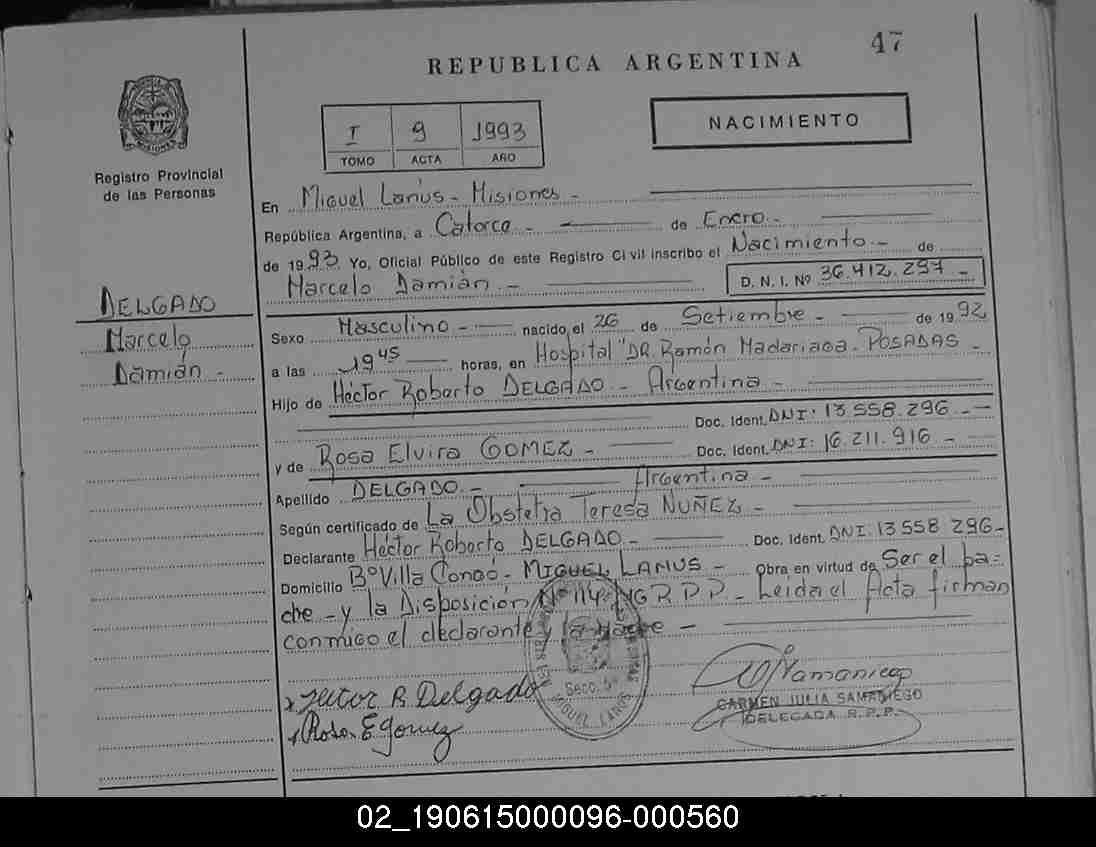 47
REPUBLICA ARGENTINA
I 9 1993
TOMO ACTA AÑO
NACIMIENTO
Registro Provincial
de las Personas
En Miguel Lanús - Misiones -
República Argentina, a Catorce - de Enero -
de 1993. Yo, Oficial Público de este Registro Civil inscribo el Nacimiento - de
Marcelo Damián - D. N. I. Nº 36.412.297 -
DELGADO
Marcelo
Damián -
Sexo Masculino - nacido el 26 de Setiembre - de 1992
a las 19 45 horas, en Hospital "DR. Ramón Madariaga - POSADAS -
Hijo de Héctor Roberto DELGADO - Argentina -
Doc. Ident. DNI: 13.558.296 -
y de Rosa Elvira GOMEZ - Doc. Ident. DNI: 16.211.916 -
Argentina -
Apellido DELGADO -
Según certificado de La Obstetra Teresa NUÑEZ -
Declarante Héctor Roberto DELGADO - Doc. Ident. DNI. 13.558.296 -
Domicilio Bº Villa - MIGUEL LANUS - Obra en virtud de Ser el pa=
dre - y la Disposición Nº 114 - Leida el Acta firman
conmigo el declarante y la Madre -
Secc. 5ª
MIGUEL LANUS
Hector R Delgado
Rosa E gomez
Samaniego
CARMEN JULIA SAMANIEGO
DELEGADA R.P.P.
02_190615000096-000560